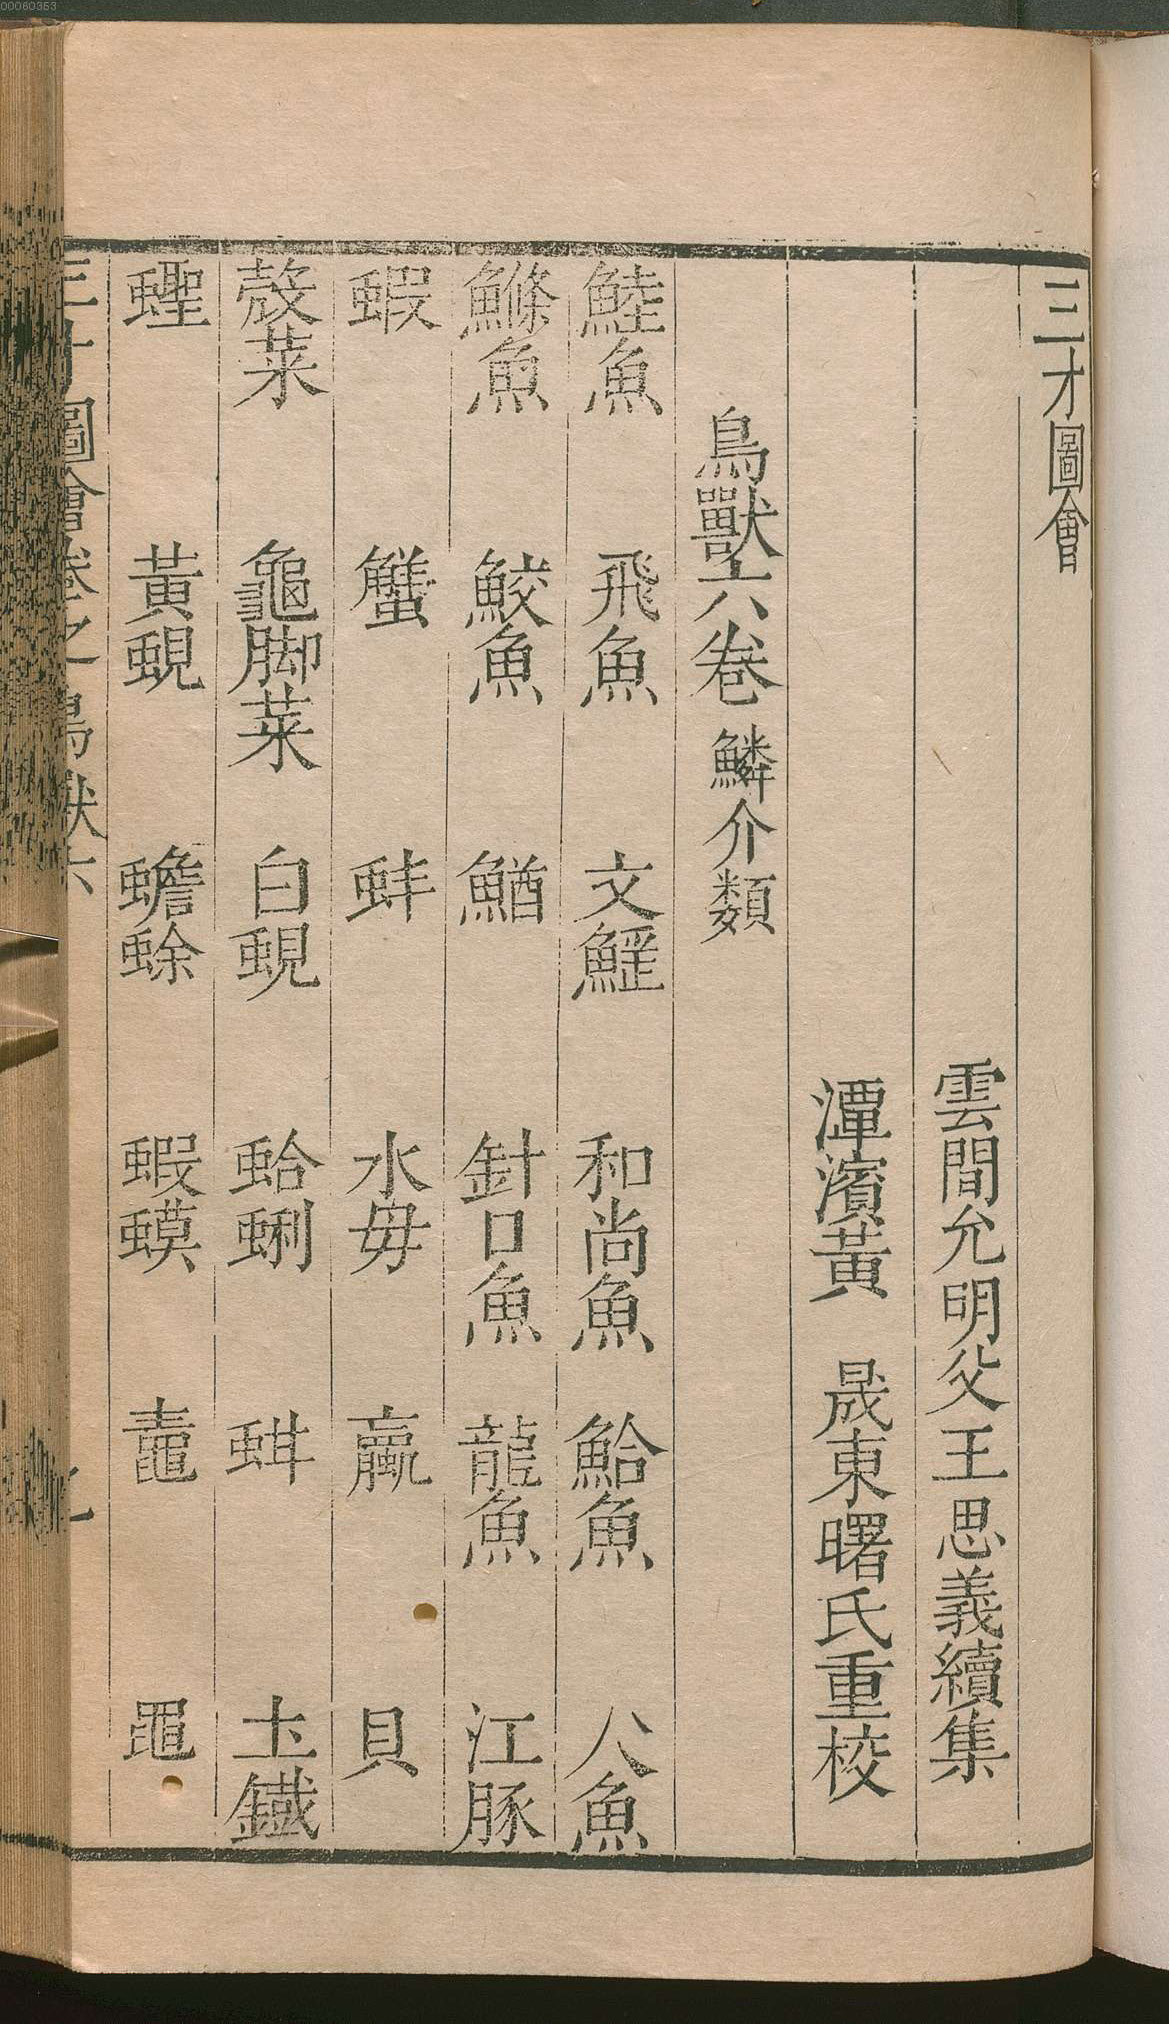 三才圖會
雲間允明父王思義續集
潭濱黃　晟東曙氏重校
鳥獸六卷 鱗介類
鯥魚　飛魚　文鰩　和尚魚　鮯魚　人魚
鰷魚　鮫魚　鰌　針口魚　龍魚　江豚
蝦　蟹　蚌　水母　蠃　貝
殼菜　龜脚菜　白蜆　蛤蜊　蚶　土鐵
蟶　黃蜆　蟾蜍　蝦蟆　鼃　黽
三才圖會卷之鳥獸六
00060353